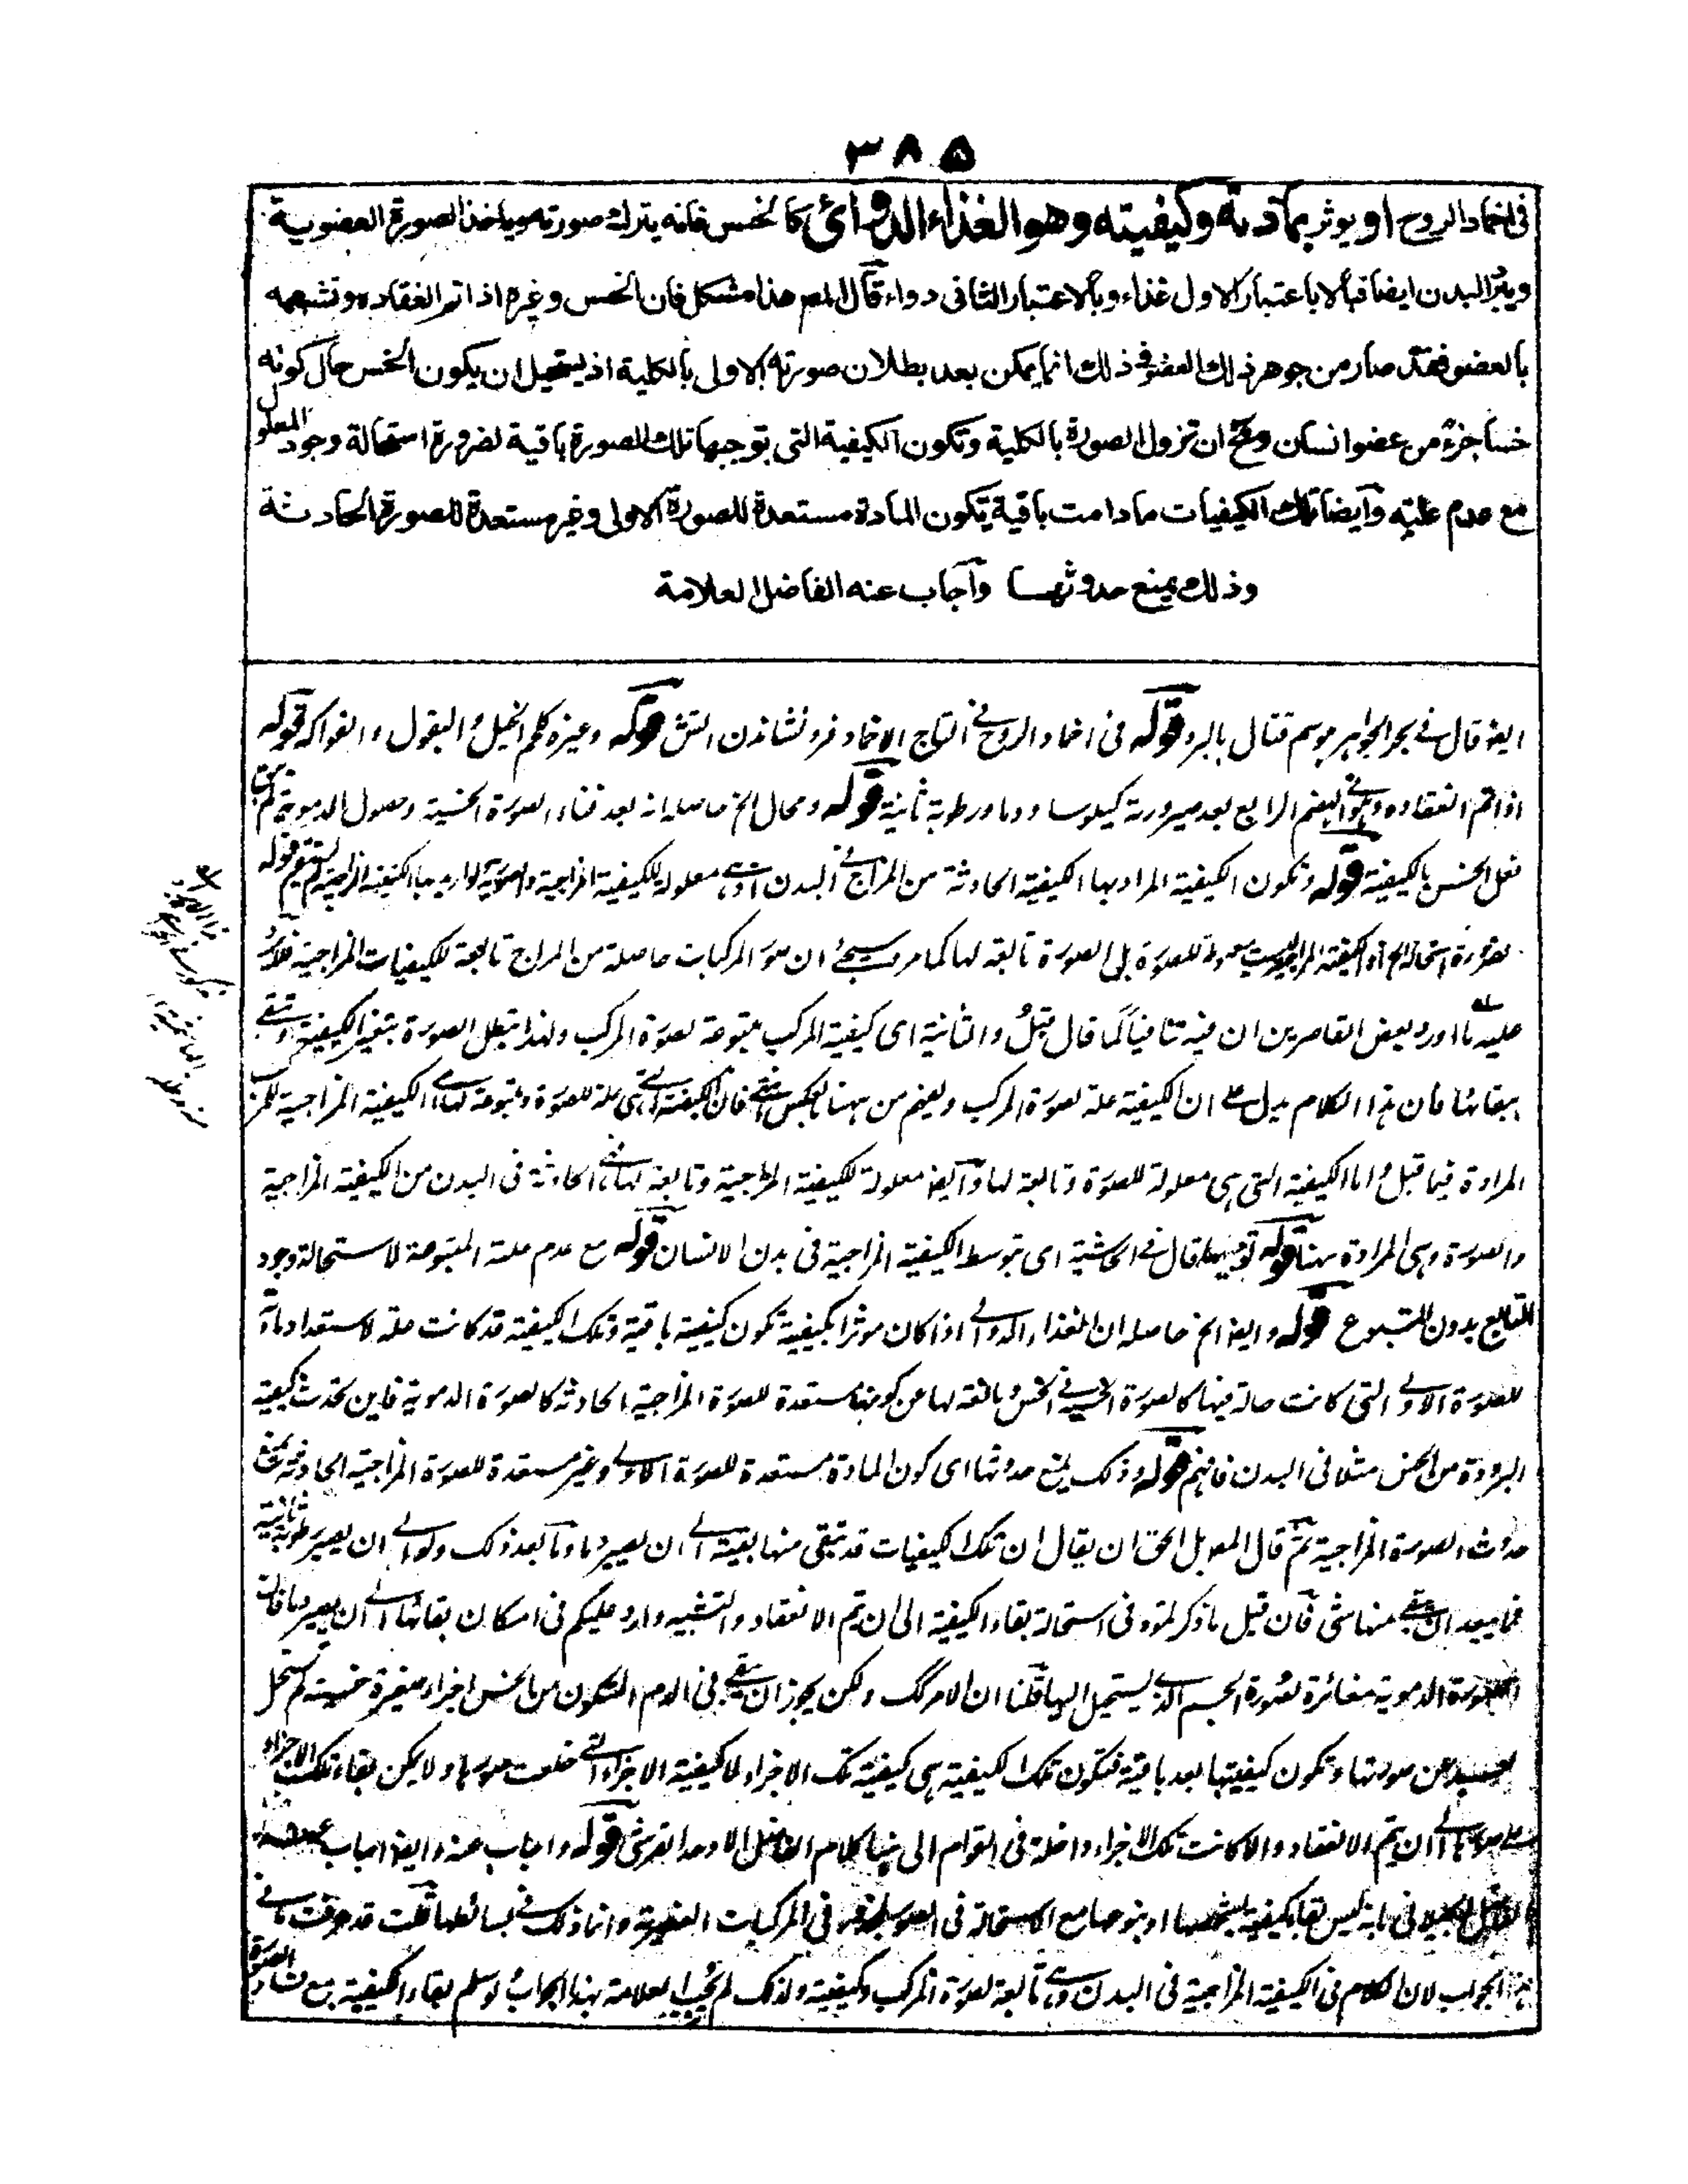 ٣٨٥
فى اخماد الروح او يوثر بمادته وكيفيته وهو الغذاء الدوائى كالخس فانه يترك صورته وياخذ الصورة العضوية
ويبرّد البدن ايضا فبالاعتبار الاول غذاء وبالاعتبار الثانى دواء قال المصر هذا مشكل فان الخس وغيره اذا تم انعقاده وتشبهه
بالعضو فقد صار من جوهر ذلك العضو و ذلك انما يمكن بعد بطلان صورته الاولى بالكلية اذ يستحيل ان يكون الخس حال كونه
خسا جزءً من عضو انسان ومح ان تزول الصورة بالكلية وتكون الكيفية التى توجبها تلك الصورة باقية لضرورة استحالة وجود المعلول
مع عدم علته وايضا تلك الكيفيات ما دامت باقية يكون المادة مستعدة للصورة الاولى وغير مستعدة للصورة الحادثة
وذلك يمنع حدوثها واجاب عنه الفاضل العلامة
ايضا قال فى بحر الجواهر قتال بالبرد قوله فى اخماد الروح فى التاج الاخماد فرو نشاندن اتش قوله وغيره كلحم الخيل والبقول والفواكه قوله
اذا تم انعقاده الهضم الرابع بعد صيرورته كيلوسا ودما ورطوبة ثانية قوله ومحال الخ حاصله انه بعد فناء الصورة الخسية وحصول الدموية
فعل الخس بالكيفية قوله وتكون الكيفية المراد بها الكيفية الحادثة من المزاج فى البدن معلولة للكيفية المزاجية
لضرورة استحالة للصورة بل الصورة تابعة لها كما مر سيجئ ان صور المركبات حاصلة من المزاج تابعة للكيفيات المزاجية فلا يرد
عليه ما اورد بعض القاصرين ان فيه تنافيا لما قال قبل والثانية اى كيفية المركب متبوعة لصورة المركب ولهذا تبطل الصورة بتغير الكيفية وتبقى
ببقائها فان هذا الكلام يدل على ان الكيفية علة لصورة المركب ويفهم من ههنا العكس انتهى فان الكيفية التى هى علة للصورة ومتبوعة لها هى الكيفية المزاجية للمركب
المرادة فيما قبل واما الكيفية التى هى معلولة للصورة وتابعة لها وايضا معلولة للكيفية المزاجية وتابعة لها فهى الحادثة فى البدن من الكيفية المزاجية
والصورة وهى المرادة ههنا قوله توجبها قال فى الحاشية اى بتوسط الكيفية المزاجية فى بدن الانسان قوله مع عدم علته المتبوعة لاستحالة وجود
التابع بدون المتبوع قوله وايضا الخ حاصله ان الغذاء الدوائى اذا كان موثرا بكيفيته تكون كيفيته باقية وتلك الكيفية قد كانت علة لاستعداد مادته
للصورة الاولى التى كانت حالة فيها كالصورة الخسية فى الخس ومانعة لها عن كونها مستعدة للصورة المزاجية الحادثة كالصورة الدموية فاين تحدث كيفية
البرودة من الخس مثلا فى البدن فافهم قوله وذلك يمنع حدوثها اى كون المادة مستعدة للصورة الاولى وغير مستعدة للصورة المزاجية الحادثة يمنع
حدوث الصورة المزاجية ثم قال الحق ان يقال ان تلك الكيفيات قد تبقى منها بقية الى ان يصير دما واما بعد ذلك ولو الى ان يصير رطوبة ثانية
فما يبعد ان يبقى منها شئ فان قيل ما ذكرتموه فى استحالة بقاء الكيفية الى ان تم الانعقاد والتشبيه وارد عليكم فى امكان بقائها الى ان يصير دما فان
الصورة الدموية مغائرة لصورة الجسم الذى يستحيل اليها قلنا ان الامر كك ولكن يجوز ان يبقى فى الدم المتكون من الخس اجزاء صغيرة خسية لم تستحل
بعد عن صورتها وتكون كيفيتها بعد باقية فتكون تلك الكيفية هى كيفية تلك الاجزاء لا كيفية الاجزاء التى خلعت صورها ولا يمكن بقاء تلك الاجزاء
على صورها الى ان يتم الانعقاد والا كانت تلك الاجزاء داخلة فى القوام الى هنا كلام الفاضل الاوحد القرشى قوله واجاب عنه وايضا اجاب عنه
الفاضل الجيلانى بانه ليس بقاء كيفية بشخصها او بنوعها مع الاستحالة فى الصور فى المركبات العنصرية وانما ذلك فى بسائطها قلت قد عرفت ما فى
هذا الجواب لان الكلام فى الكيفية المزاجية فى البدن وهى تابعة لصورة المركب وكيفيته ولذلك لم يجب العلامة بهذا الجواب ولو سلم بقاء الكيفية مع فساد الصورة